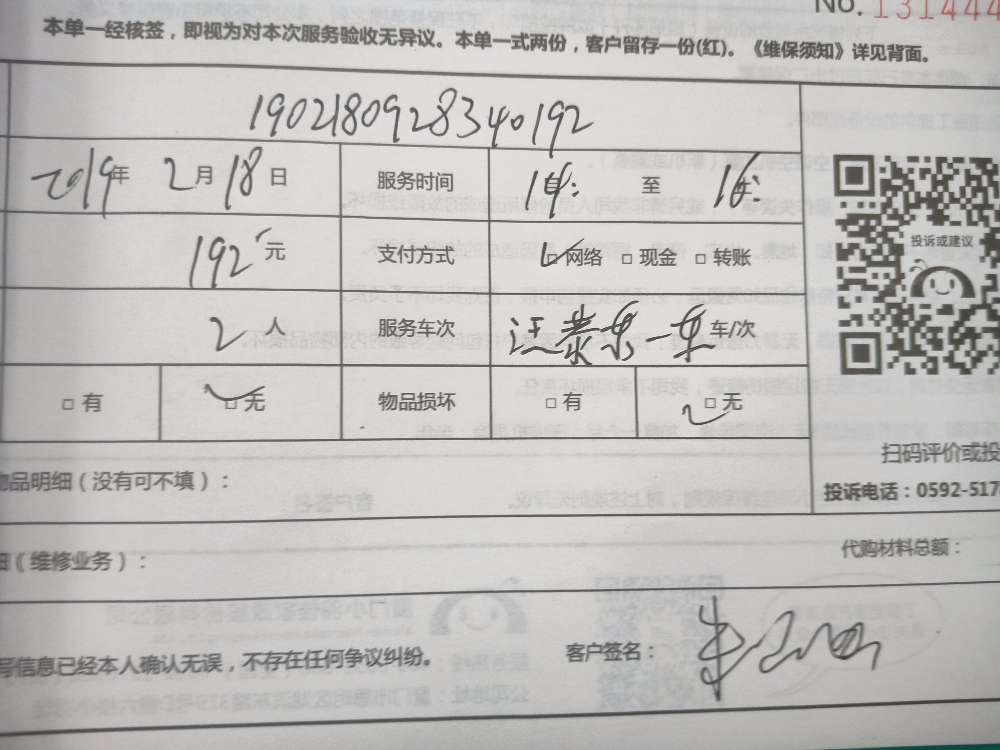 No. 131444
本单一经核签，即视为对本次服务验收无异议。本单一式两份，客户留存一份(红)。《维保须知》详见背面。
1902180928340192
2019年 2月 18日 服务时间 14: 至 16:
投诉或建议
192元 支付方式 □网络 □现金 □转账
2人 服务车次 车/次
□有 □无 物品损坏 □有 □无
扫码评价或投
物品明细（没有可不填）：
投诉电话：0592-517
细（维修业务）：
代购材料总额：
写信息已经本人确认无误，不存在任何争议纠纷。
客户签名：